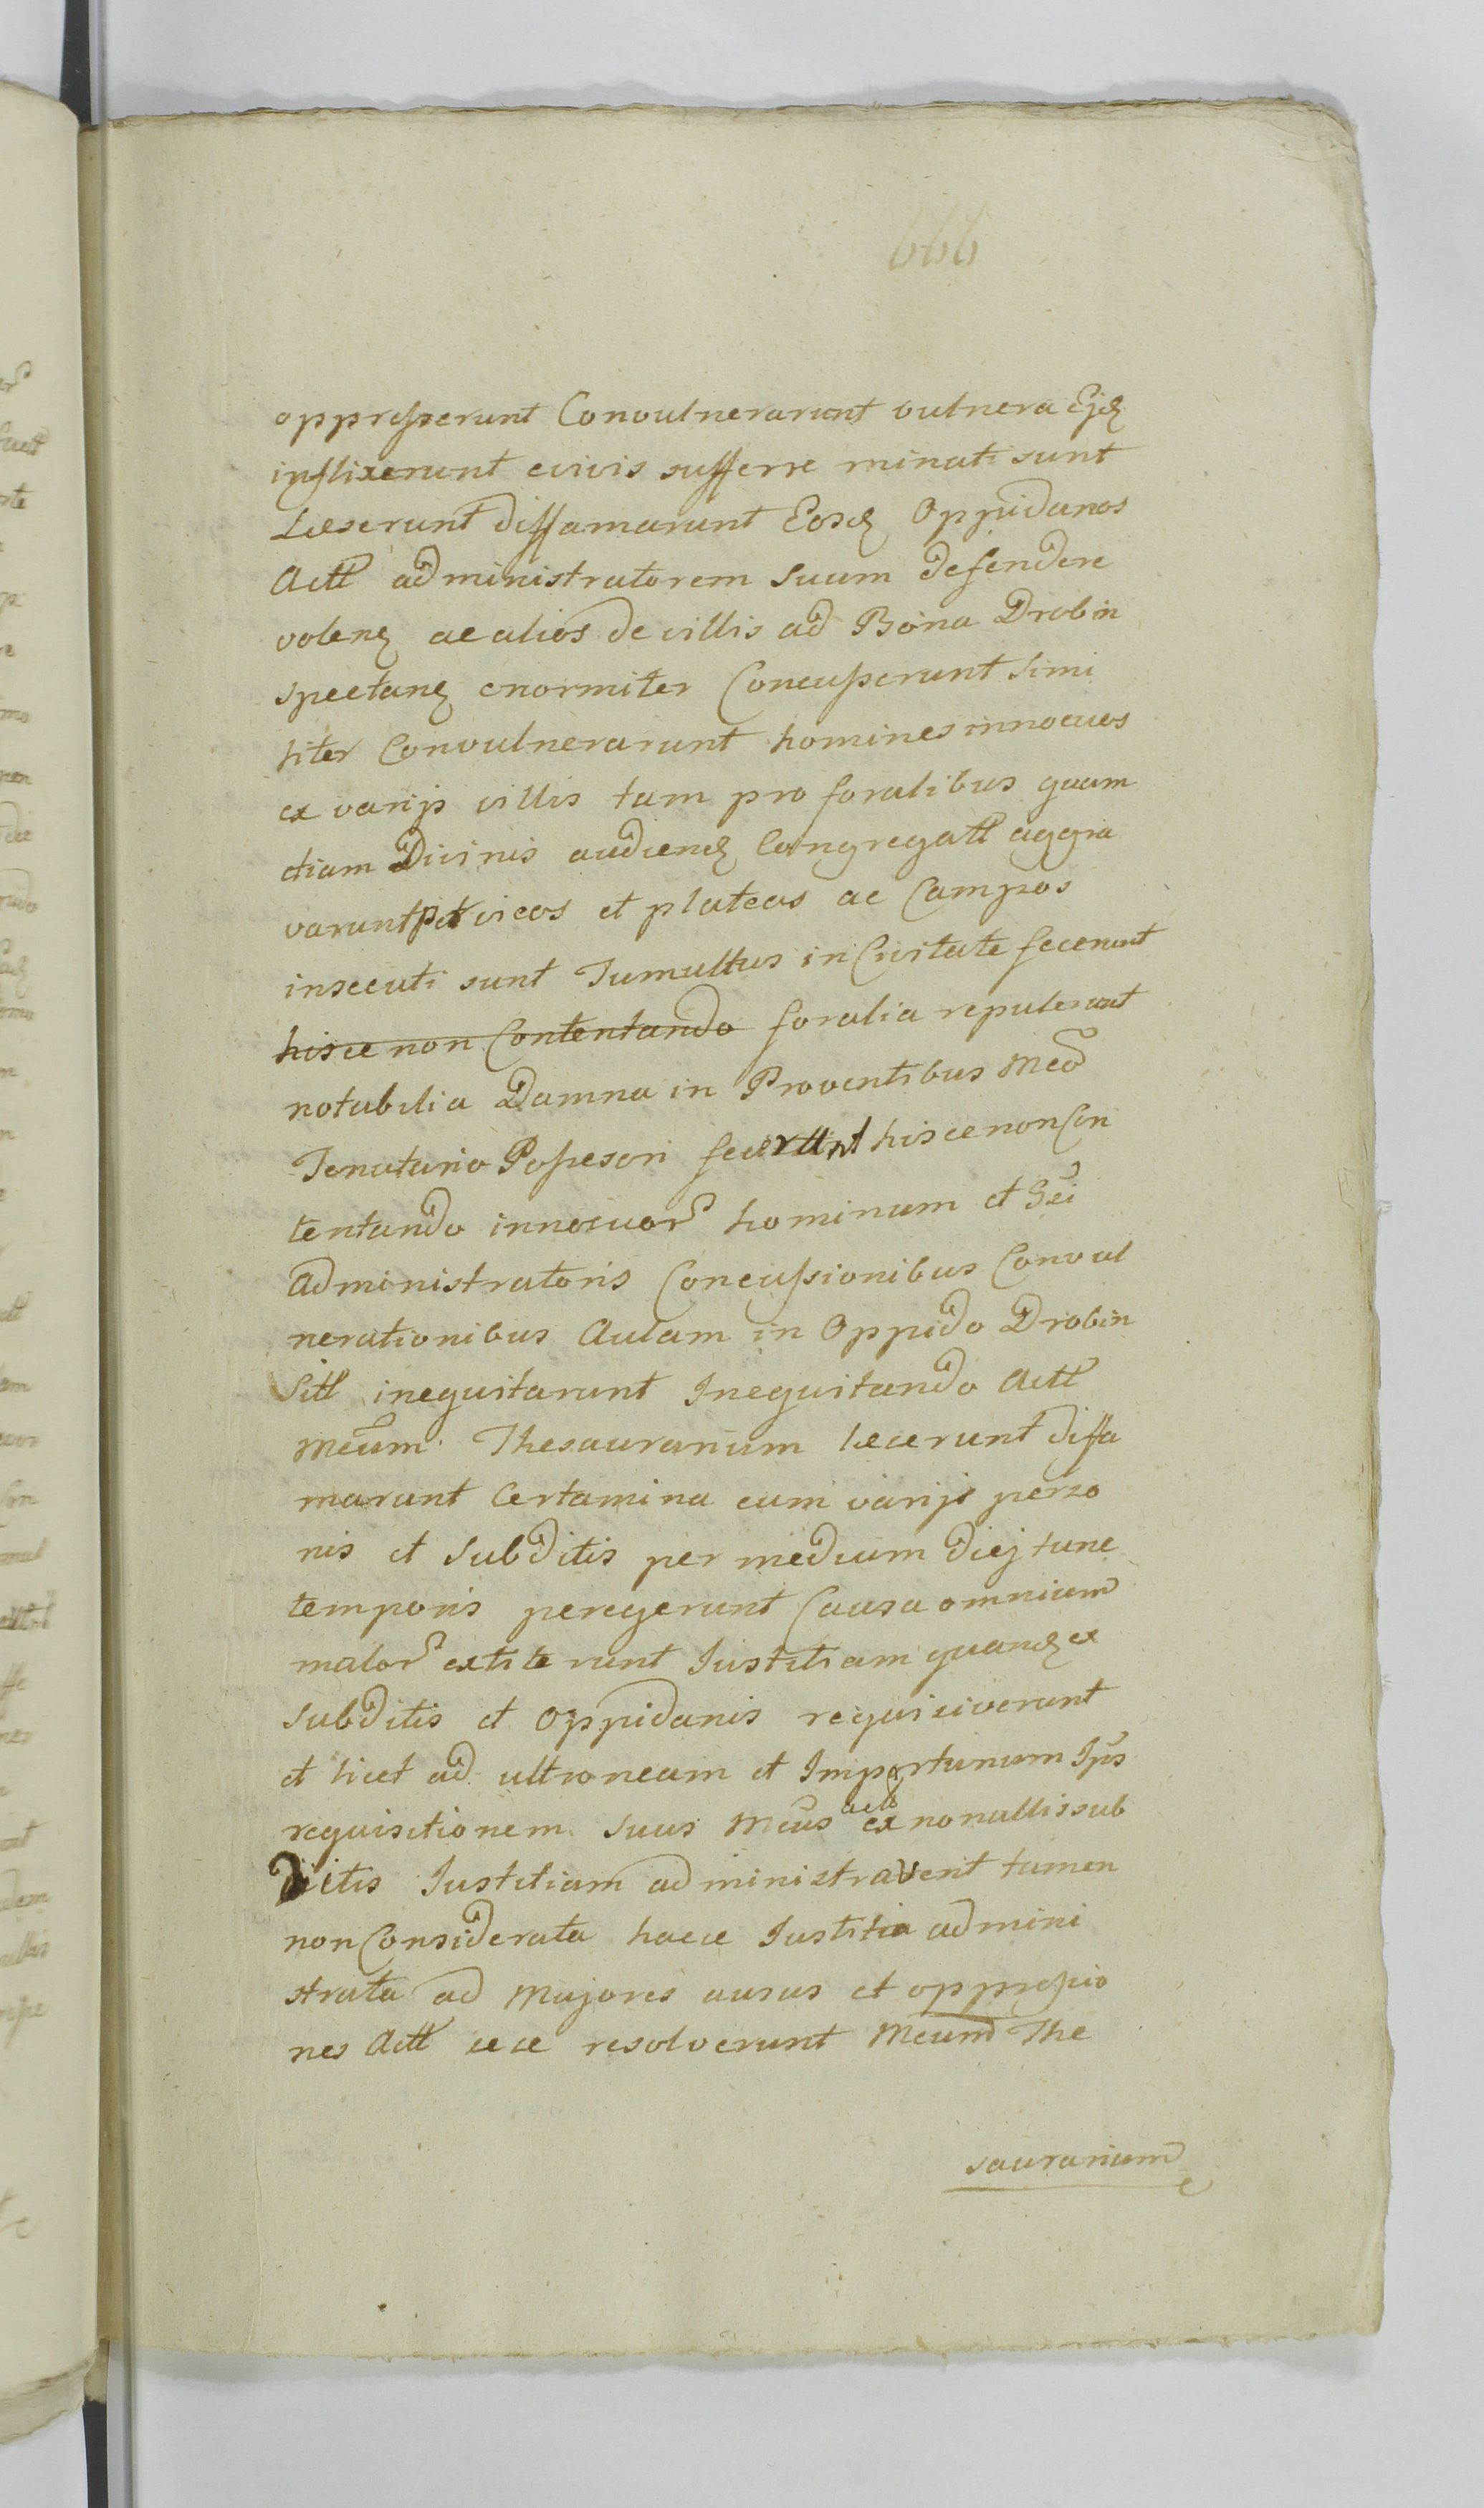 666
oppresserunt Convulnerarunt vulnera Ejd
inflixerunt evivis sufferre minati sunt
Læserunt diffamarunt Eosd Oppidanos
Actt administratorem suum defendere
volend ac alios de villis ad Bona Drobin
spectand enormiter Concusserunt simi
liter Convulnerarunt homines innocuos
ex varijs villis tam pro foralibus quam
etiam Divinis audiend Congregatt aggra
varunt per vicos et plateas ac Campos
insecuti sunt Tumultus in Civitate fecerunt
hisce non Contentando foralia repulerunt
notabilia Damna in Proventibus Meo
Tenutario Possesori fecerunt hisce non Con
tentando innocuor hominum et Sui
administratoris Concussionibus Convul
nerationibus Aulam in Oppido Drobin
Sitt inequitarunt Inequitando Actt
Meum Thesaurarium læcerunt diffa
marunt Certamina cum varijs perso
nis et subditis per medium diej tunc
temporis peregerunt Causa omnium
malor extiterunt Justitiam quand ex
subditis et Oppidanis requisiverunt
et licet ad ultroneam et Importunam Ips
requisitionem suus Meus acto ex nonullis sub
ditis Justitiam administraverit tamen
non Considerata haece Justitia admini
strata ad Majores ausus et oppressio
nes Actt sese resolverunt Meum The
saurarium